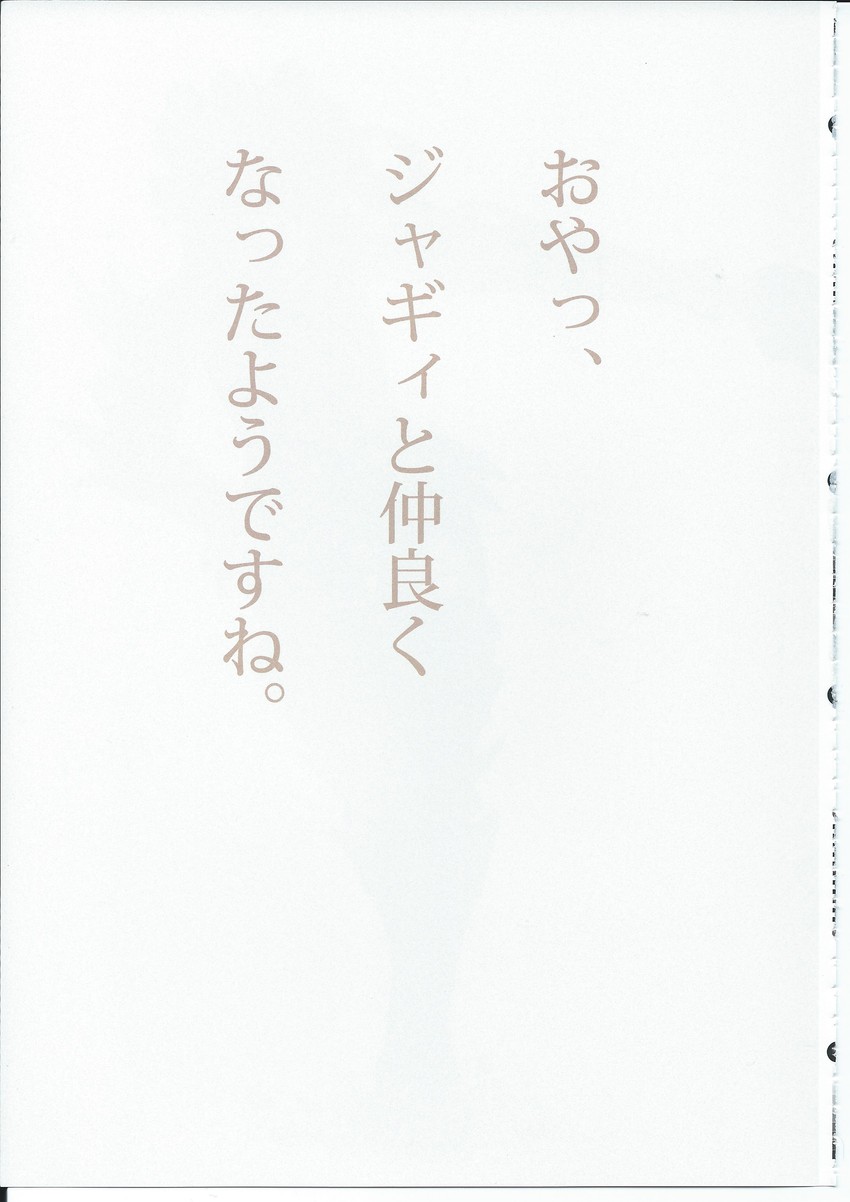 おやっ、
ジャギィと仲良く
なったようですね。